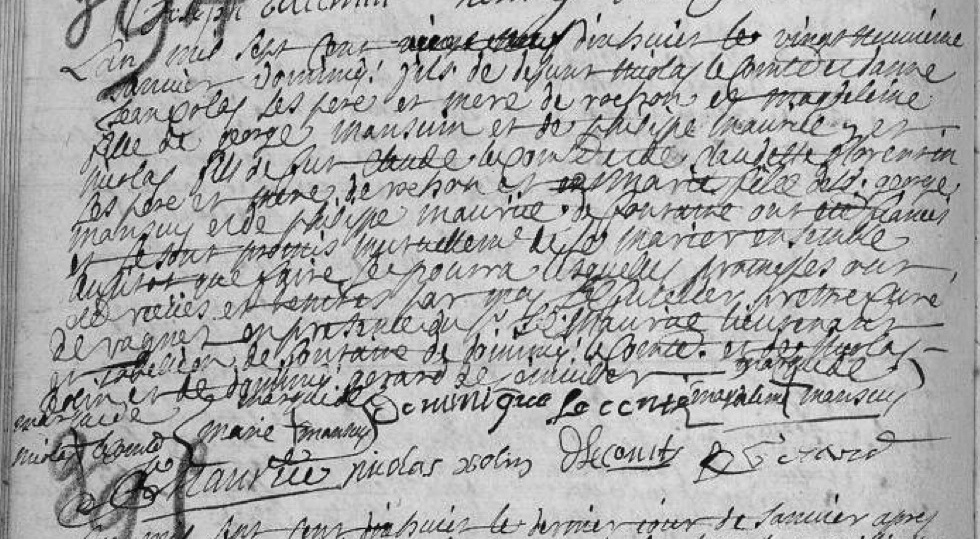 L'an mil sept cent dixhuict le vingt neuvieme
Janvier Dominiq: fils de defunt Nicolas le Comte et Janne
Jeancolas ses pere et mere de rochon et magdeleine
fille de george mansuin et de philippe maurice, et
Nicolas fils de fut claude le Comte et de Claudette florentin
ses pere et mere de rochon et marie fille dud. george
mansuy et de philippe maurice de fontaine ont été fiancés
et se sont promis mutuellemt de se marier ensemble
aussitot que faire se pourra lesquelles promesses ont
été receües et benites par moy prettre Curé
de vagney en presence du Sr maurice lieutenant
et tabellion de fontaine de Dominiq: le Comte et de Nicolas
et de Dominiq: gerard de
marque de marque de marque de
Dominique Le conte magdeleine mansuy
nicolas le comte marie mansuy
Maurice nicolas D le conte D Gerard
L'an mil sept cent dixhuict le dernier jour de Janvier apres